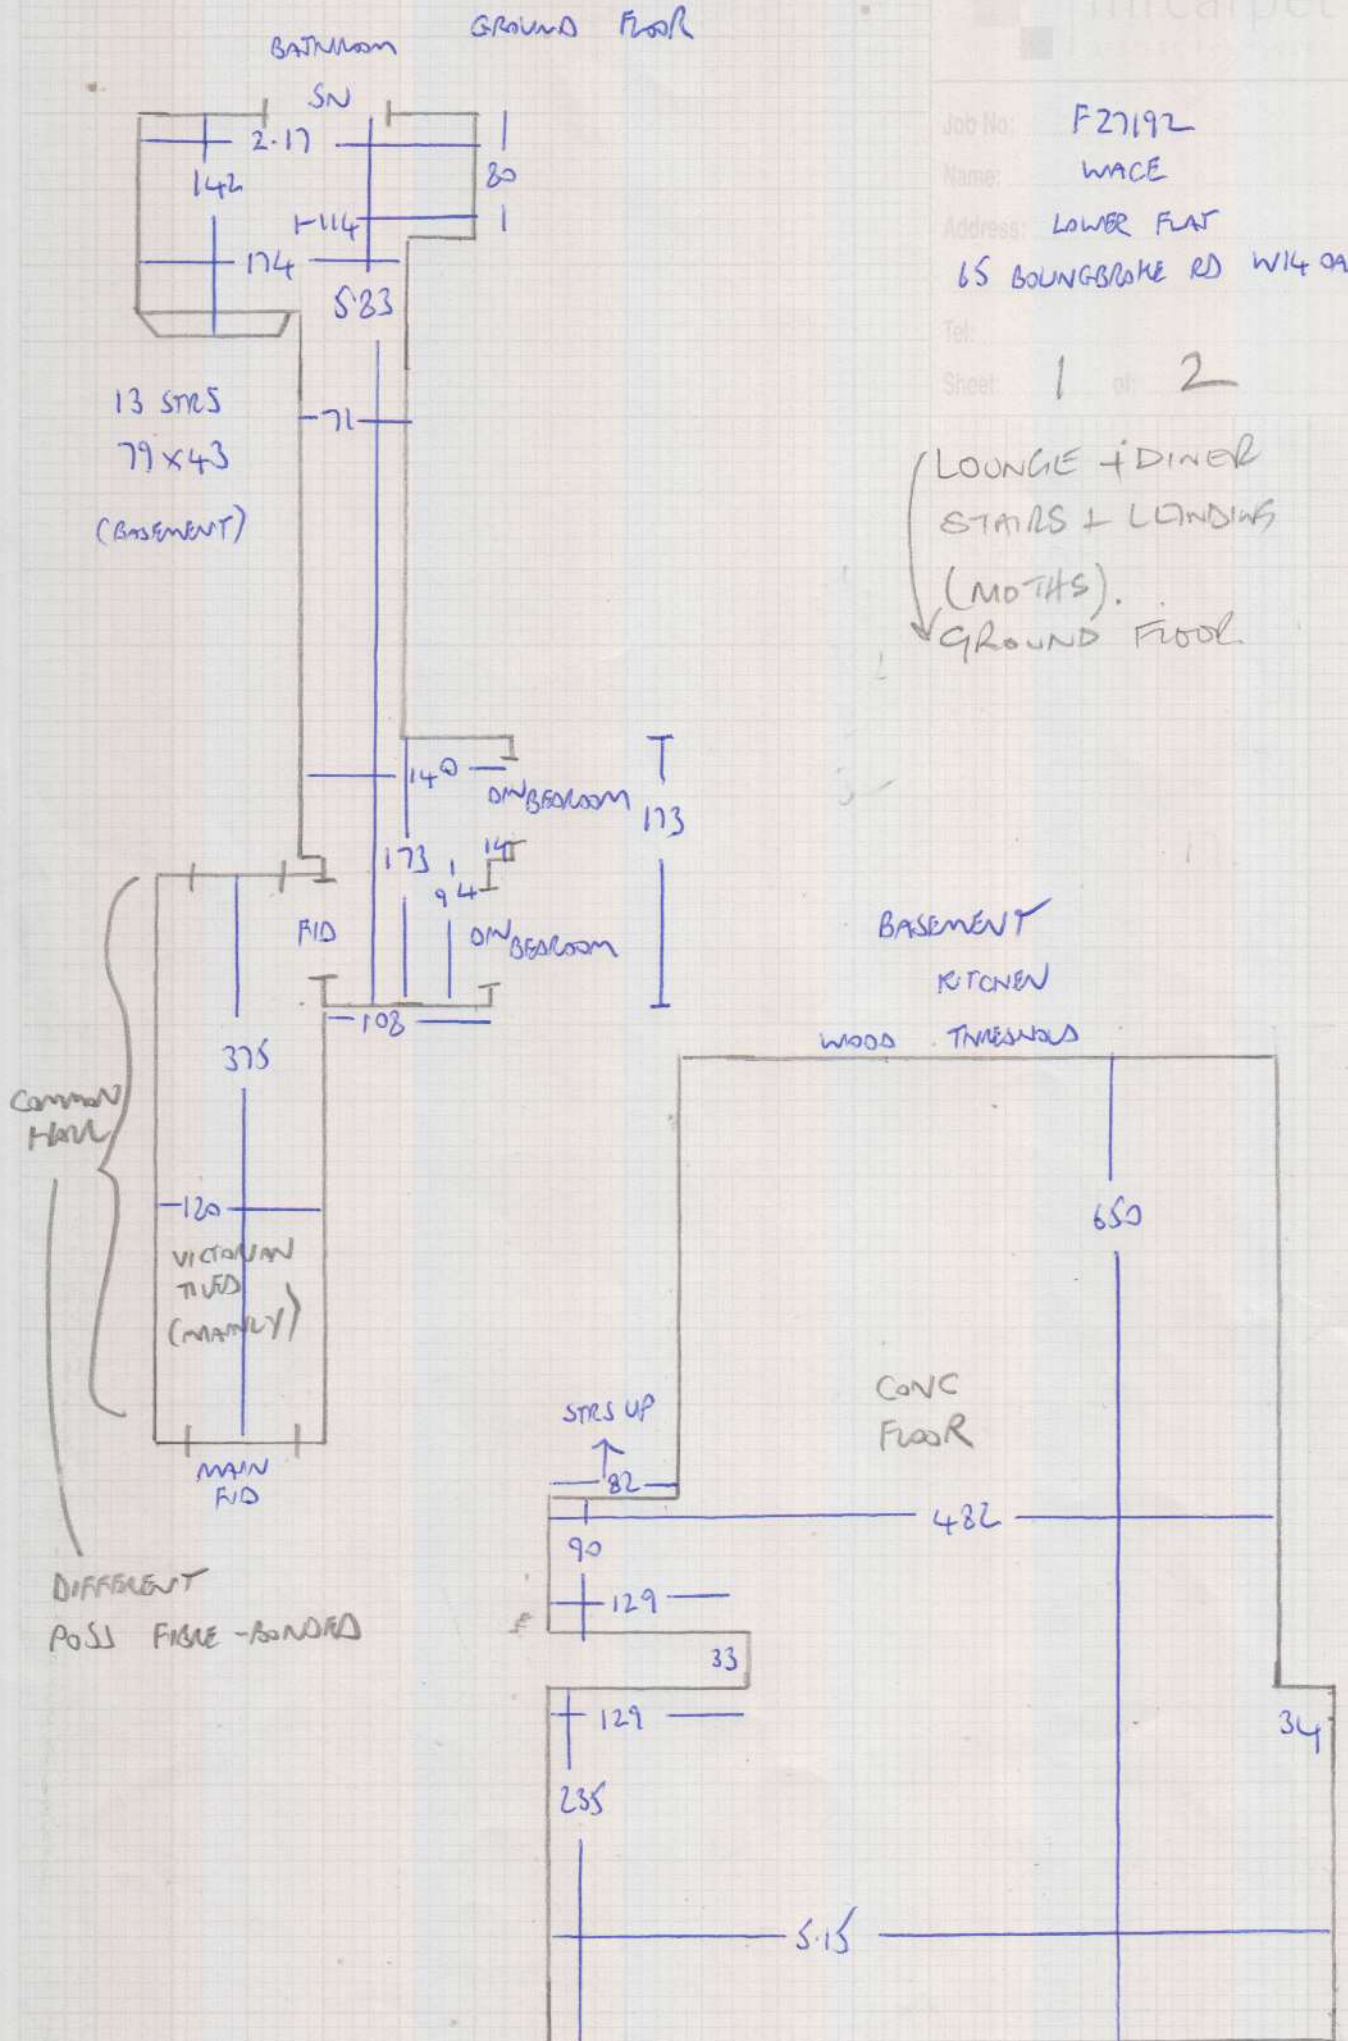 GROUND FLOOR
BATHROOM
SN
2.17
142
80
1-114
174
583
13 STRS
79 x 43
(BASEMENT)
71
Job No: F27192
Name: WACE
Address: LOWER FLAT
65 BOLINGBROKE RD W14 0A
Tel:
Sheet: 1 of: 2
LOUNGE + DINER
STAIRS + LANDING
(MOTHS).
GROUND FLOOR
140
D/W BEDROOM
173
14
173
94
F/D
D/W BEDROOM
108
375
COMMON
HALL
120
VICTORIAN
TILED
(MAINLY)
MAIN
F/D
DIFFERENT
POSS FIBRE-BONDED
BASEMENT
KITCHEN
WOOD THRESHOLD
650
CONC
FLOOR
STRS UP
82
482
90
129
33
129
34
235
5.15